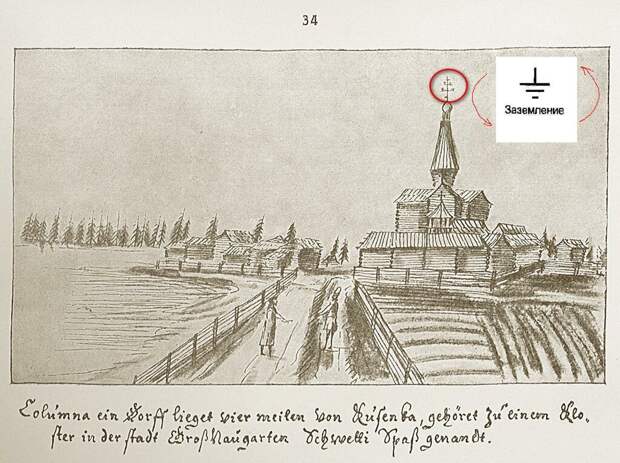 34
Заземление
Columna ein Dorff lieget vier meilen von Rusenka, gehöret zu einem Klo-
ster in der stadt GroßNaugarten Schwetti Spaß genandt.